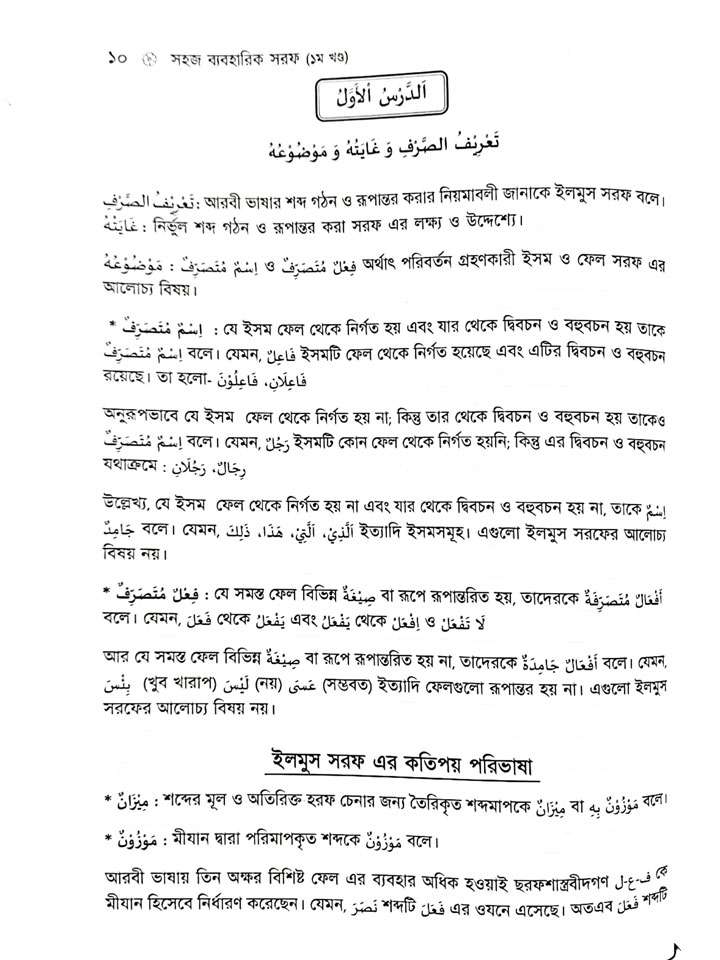 ১০ সহজ ব্যবহারিক সরফ (১ম খণ্ড)
اَلدَّرْسُ الْأَوَّلُ
تَعْرِيْفُ الصَّرْفِ وَ غَايَتُهُ وَ مَوْضُوْعُهُ
تَعْرِيْفُ الصَّرْفِ : আরবী ভাষার শব্দ গঠন ও রূপান্তর করার নিয়মাবলী জানাকে ইলমুস সরফ বলে।
غَايَتُهُ : নির্ভুল শব্দ গঠন ও রূপান্তর করা সরফ এর লক্ষ্য ও উদ্দেশ্যে।
مَوْضُوْعُهُ : اِسْمٌ مُتَصَرِّفٌ ও فِعْلٌ مُتَصَرِّفٌ অর্থাৎ পরিবর্তন গ্রহণকারী ইসম ও ফেল সরফ এর
আলোচ্য বিষয়।
* اِسْمٌ مُتَصَرِّفٌ : যে ইসম ফেল থেকে নির্গত হয় এবং যার থেকে দ্বিবচন ও বহুবচন হয় তাকে
اِسْمٌ مُتَصَرِّفٌ বলে। যেমন, فَاعِلٌ ইসমটি ফেল থেকে নির্গত হয়েছে এবং এটির দ্বিবচন ও বহুবচন
রয়েছে। তা হলো- فَاعِلَانِ، فَاعِلُوْنَ
অনুরূপভাবে যে ইসম ফেল থেকে নির্গত হয় না; কিন্তু তার থেকে দ্বিবচন ও বহুবচন হয় তাকেও
اِسْمٌ مُتَصَرِّفٌ বলে। যেমন, رَجُلٌ ইসমটি কোন ফেল থেকে নির্গত হয়নি; কিন্তু এর দ্বিবচন ও বহুবচন
যথাক্রমে : رِجَالٌ، رَجُلَانِ
উল্লেখ্য, যে ইসম ফেল থেকে নির্গত হয় না এবং যার থেকে দ্বিবচন ও বহুবচন হয় না, তাকে اِسْمٌ
جَامِدٌ বলে। যেমন, اَلَّذِيْ، اَلَّتِيْ، هَذَا، ذَلِكَ ইত্যাদি ইসমসমূহ। এগুলো ইলমুস সরফের আলোচ্য
বিষয় নয়।
* فِعْلٌ مُتَصَرِّفٌ : যে সমস্ত ফেল বিভিন্ন صِيْغَةٌ বা রূপে রূপান্তরিত হয়, তাদেরকে أَفْعَالٌ مُتَصَرِّفَةٌ
বলে। যেমন, فَعَلَ থেকে يَفْعَلُ এবং يَفْعَلُ থেকে اِفْعَلْ ও لَا تَفْعَلْ
আর যে সমস্ত ফেল বিভিন্ন صِيْغَةٌ বা রূপে রূপান্তরিত হয় না, তাদেরকে أَفْعَالٌ جَامِدَةٌ বলে। যেমন,
بِئْسَ (খুব খারাপ) لَيْسَ (নয়) عَسَى (সম্ভবত) ইত্যাদি ফেলগুলো রূপান্তর হয় না। এগুলো ইলমুস
সরফের আলোচ্য বিষয় নয়।
ইলমুস সরফ এর কতিপয় পরিভাষা
* مِيْزَانٌ : শব্দের মূল ও অতিরিক্ত হরফ চেনার জন্য তৈরিকৃত শব্দমাপকে مِيْزَانٌ বা مَوْزُوْنٌ بِهِ বলে।
* مَوْزُوْنٌ : মীযান দ্বারা পরিমাপকৃত শব্দকে مَوْزُوْنٌ বলে।
আরবী ভাষায় তিন অক্ষর বিশিষ্ট ফেল এর ব্যবহার অধিক হওয়াই ছরফশাস্ত্রবীদগণ ف-ع-ل কে
মীযান হিসেবে নির্ধারণ করেছেন। যেমন, نَصَرَ শব্দটি فَعَلَ এর ওযনে এসেছে। অতএব فَعَلَ শব্দটি